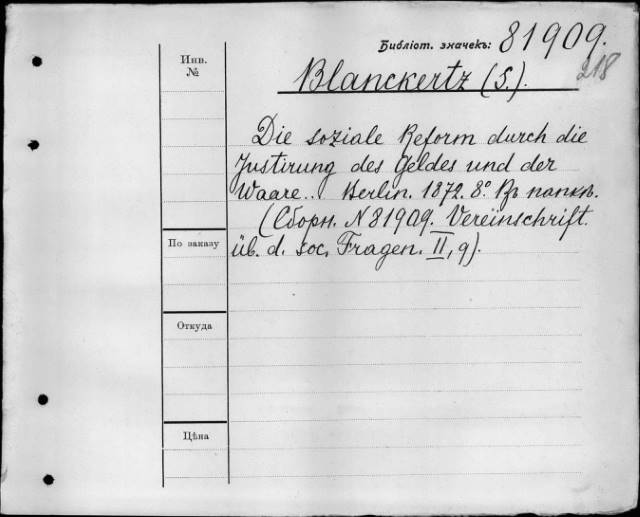 Библіот. значекъ: 81909.
218
Инв.
№
Blanckertz (S.).
Die soziale Reform durch die
Justirung des Geldes und der
Waare.. Berlin. 1872. 8° Въ папкѣ.
(Сборн. N 81909. Vereinschrift.
По заказу
üb. d. soc. Fragen. II, 9).
Откуда
Цѣна